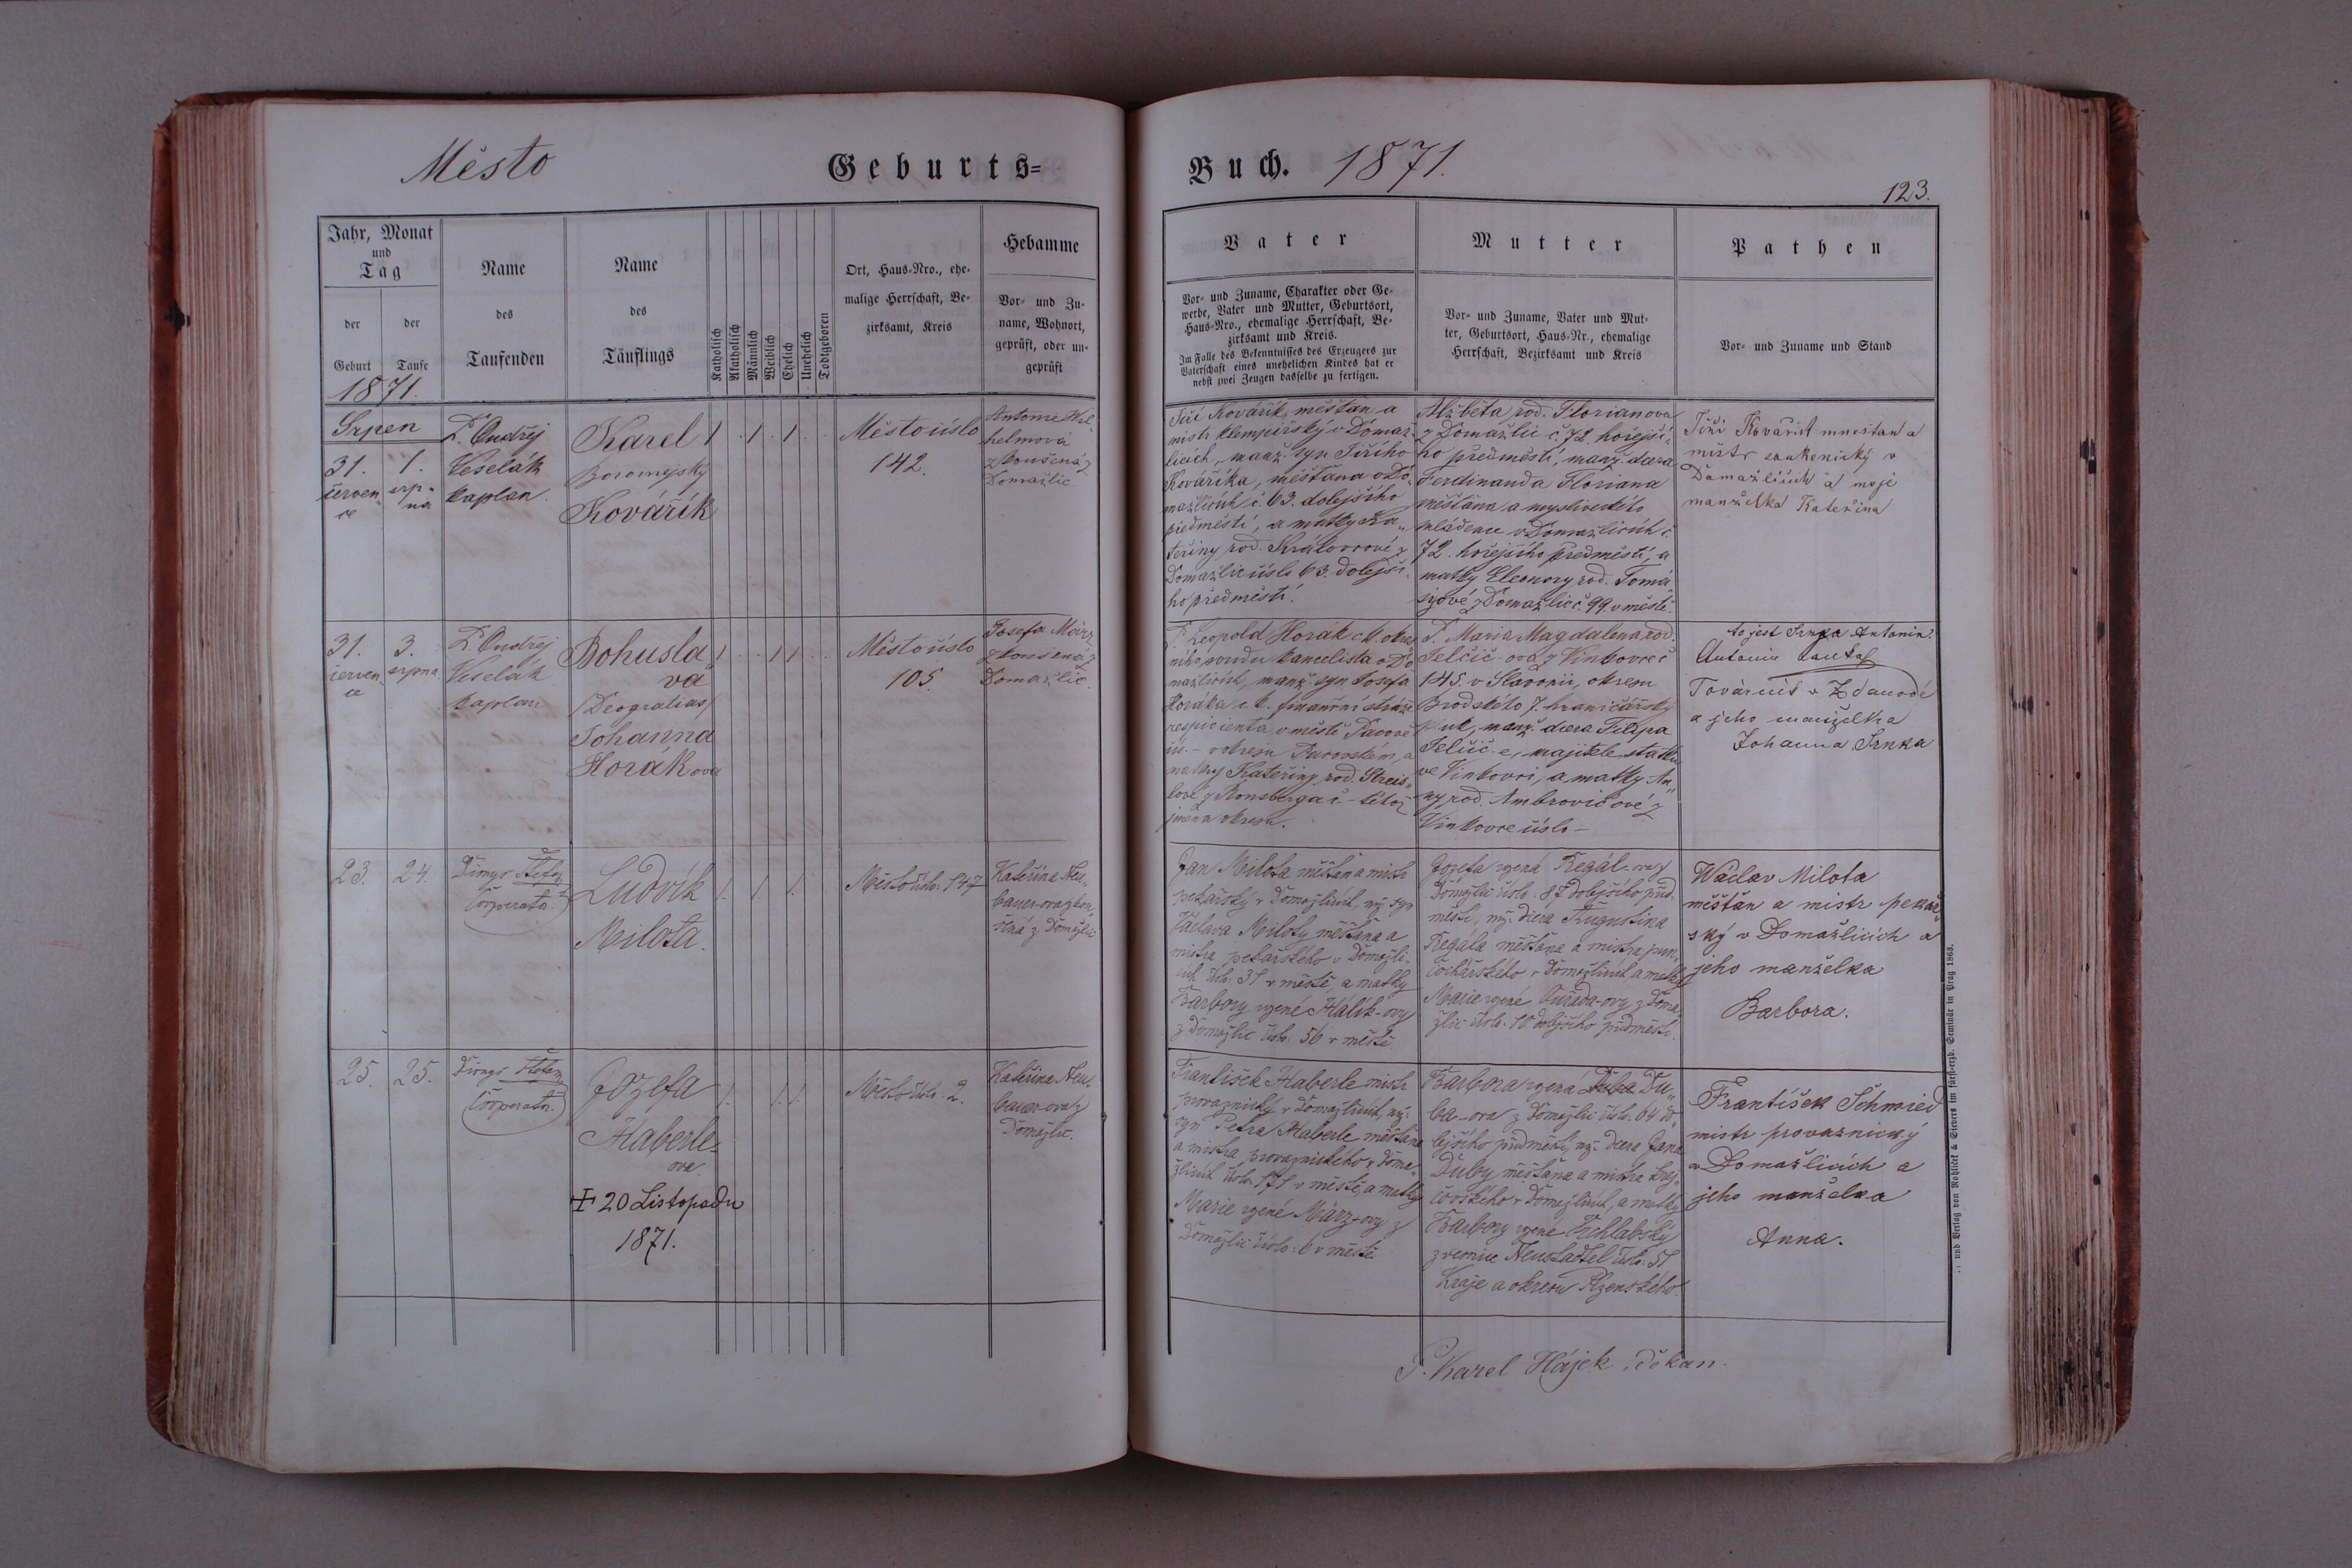 Město
Geburts=
Buch. 1871.
123.
Jahr, Monat
und
Tag
der
Geburt
der
Taufe
Name
des
Taufenden
Name
des
Täuflings
Katholisch
Akatholisch
Männlich
Weiblich
Ehelich
Unehelich
Todtgeboren
Ort, Haus-Nro., ehe-
malige Herrschaft, Be-
zirksamt, Kreis
Hebamme
Vor- und Zu-
name, Wohnort,
geprüft, oder un-
geprüft
Vater
Vor- und Zuname, Charakter oder Ge-
werbe, Vater und Mutter, Geburtsort,
Haus-Nro., ehemalige Herrschaft, Be-
zirksamt und Kreis.
Im Falle des Bekenntnisses des Erzeugers zur
Vaterschaft eines unehelichen Kindes hat er
nebst zwei Zeugen dasselbe zu fertigen.
Mutter
Vor- und Zuname, Vater und Mut-
ter, Geburtsort, Haus-Nr., ehemalige
Herrschaft, Bezirksamt und Kreis
Pathen
Vor- und Zuname und Stand
1871.
Srpen
31.
červen-
ce
1.
srp-
na
P. Ondřej
Veselák
kaplan.
Karel
Boromejský
Kovářík
1 . 1 . 1 . .
Město číslo
142.
Antonie Wil-
helmova
zkoušená z
Domažlic
Jiří Kovářík, měštan a
mistr klempířský v Domaž-
licích, manž. syn Jiřího
Kovaříka, měštana v Do-
mažlicích č. 63. dolejšího
předměstí, a matky Ka-
teřiny rod. Královcové z
Domažlic číslo 63. dolejší-
ho předměstí.
Alžběta rod. Florianova
z Domažlic č. 72. hořejší-
ho předměstí, manž. dcera
Ferdinanda Floriana
měštana a mysliveckého
mládence v Domažlicích č.
72. hořejšího předměstí, a
matky Eleonory rod. Tomá-
szové z Domažlic č. 99. v městě.
Jiří Kovářík mnestan a
mistr soukenický v
Domažlicích a moje
manželka Kateřina
31.
červen-
ce
3.
srpna
P. Ondřej
Veselák
kaplan
Bohusla-
va
/Deogratias/
Johanna
Horákova
1 . . 1 1 . .
Město číslo
105.
Josefa März
zkoušená z
Domažlic
P. Leopold Horák c. k. okres-
ního soudu kancelista v Do-
mažlicích, manž. syn Josefa
Horáka c. k. finanční stráže
respicienta v městě Pacově
čís. – v okresu Pacovském, a
matky Kateřiny rod. Streis-
lové z Ronsberga č. – téhož
jména okresu.
P. Maria Magdalena rod.
Jelčič-ova z Vinkovce č.
145. v Slavonii, okresu
Brodského 7. hraničářský
pluk, manž. dcera Filipa
Jelčič-e, majitele statku
ve Vinkovci, a matky An-
ny rod. Ambrovičové z
Vinkovce číslo –
to jest Srnka Antonin.
Továrník v Zdanově
a jeho manželka
Johanna Srnka
23.
24.
Cooperator.
Ludvík
Milota.
1. 1. 1.
Město číslo: 147
Kateřina Neu-
bauer-ova zkou-
šená z Domažlic
Jan Milota měštan a mistr
pekařský v Domažlicích, mž. syn
Václava Miloty měštana a
mistra pekařského v Domažli-
cích číslo: 31 v městě, a matky
Barbory rozené Hálík-ovy
z Domažlic číslo: 56 v městě.
Jozefa rozená Regál-ova z
Domažlic číslo: 87 dolejšího před-
městí, mž: dcera Augustina
Regála měštana a mistra pun-
čochářského v Domažlicích, a matky
Marie rozené Ouřada-ovy z Doma-
žlic číslo: 10 dolejšího předměstí.
Wáclav Milota
měštan a mistr pekař-
ský v Domažlicích a
jeho manželka
Barbora.
25.
25.
Cooperator.
Jozefa
Haberle-
ova.
✝ 20 Listopadu
1871.
1. 1. 1.
Město číslo: 2.
Kateřina Neu-
bauer-ova z
Domažlic.
František Haberle mistr
provaznický v Domažlicích, mž:
syn Petra Haberle měštana
a mistra provaznického v Doma-
žlicích číslo: 171 v městě, a matky
Marie rozené März-ovy z
Domažlic číslo: 6 v městě.
Barbora rozená Du-
ba-ova z Domažlic číslo: 64 do-
lejšího předměstí, mž: dcera Jana
Duby měštana a mistra krej-
čovského v Domažlicích, a matky
Barbory rozené
z vesnice Neustadtel číslo: 51
Kraje a okresu Plzenského.
František Schmied
mistr provaznický
v Domažlicích a
jeho manželka
Anna.
P. Karel Hájek, děkan.
und Verlag von Rohlíček & Sievers im fürsterzb. Seminär in Prag 1863.